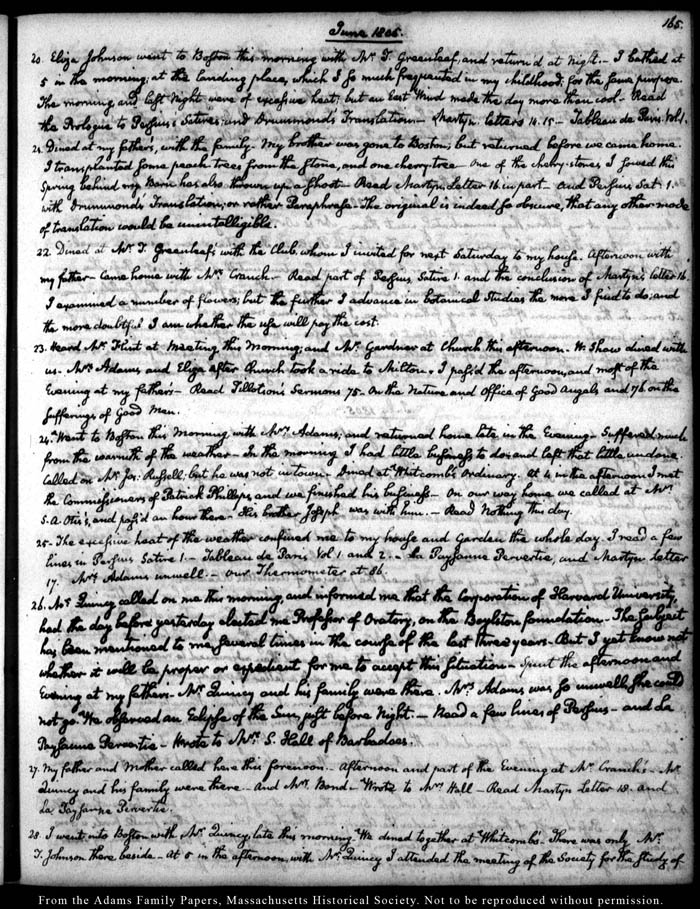 165.
June 1805.
20. Eliza Johnson went to Boston this morning with Mr. T. Greenleaf, and return'd at Night.— I bathed at
5 in the morning, at the landing place, which I so much frequented in my childhood, for the same purpose.
The morning and last Night were of excessive heat; but an East Wind made the day more than cool— Read
the Prologue to Persius's Satires and Drummond's Translation— Martyn. letters 14. 15— Tableau de Paris. Vol. 1.
21. Dined at my father's, with the family. My brother was gone to Boston; but returned before we came home.
I transplanted some peach trees from the stone, and one cherry tree— One of the cherry-stones I sowed this
Spring behind my Barn has also thrown up a shoot— Read Martyn. Letter 16. in part. and Persius Sat: 1.
with Drummond's Translation, or rather Paraphrase— The original is indeed so obscure, that any other mode
of translation would be unintelligible.
22. Dined at Mr. T. Greenleaf's with the Club, whom I invited for next Saturday to my house. Afternoon with
my father— Came home with Mr. Cranch— Read part of Persius, Satire 1. and the conclusion of Martyn's letter 16.
I examined a number of flowers; but the further I advance in botanical Studies the more I find to do; and
the more doubtful I am whether the use will pay the cost.
23. Heard Mr. Flint at Meeting this Morning; and Mr. Gardner at Church this afternoon. W. Shaw dined with
us. Mrs. Adams and Eliza after Church took a ride to Milton. I pass'd the afternoon, and most of the
Evening at my father's— Read Tillotson's Sermons 75— On the Nature and Office of Good Angels and 76 on the
sufferings of Good Men.
24. Went to Boston this Morning with Mrs. Adams; and returned home late in the Evening— Suffered much
from the warmth of the weather— In the morning I had little business to do; and left that little undone—
Called on Mr. Jos: Russell; but he was not in town— Dined at Whitcomb's Ordinary. At 4 in the afternoon I met
the Commissioners of Patrick Phillips, and we finished his business— On our way home we called at Mr.
S. A. Otis's, and pass'd an hour there— His brother Joseph was with him.— Read Nothing this day.
25. The excessive heat of the weather confined me to my house and Garden the whole day. I read a few
lines in Persius Satire 1.— Tableau de Paris Vol 1. and 2.— La Paysanne Pervertie, and Martyn letter
17. Mrs. Adams unwell.— Our Thermometer at 86.
26. Mr. Quincy called on me this morning, and informed me that the Corporation of Harvard University,
had the day before yesterday elected me Professor of Oratory, on the Boylston foundation— The subject
has been mentioned to me several times in the course of the last three years— But I yet know not
whether it will be proper or expedient for me to accept this situation— Spent the afternoon and
Evening at my father's— Mr. Quincy and his family were there. Mrs. Adams was so unwell, she could
not go. We observed an Eclipse of the Sun, just before Night.— Read a few lines of Persius— and La
Paysanne Pervertie— Wrote to Mr. S. Hall of Barbadoes.
27. My father and Mother called here this forenoon— Afternoon and part of the Evening at Mr. Cranch's— Mr.
Quincy and his family were there— And Mrs. Bond— Wrote to Mr. Hall— Read Martyn Letter 18. and
La Paysanne Pervertie.
28. I went into Boston with Mr. Quincy, late this morning. We dined together at Whitcomb's. There was only Mr.
T. Johnson there beside— At 5 in the afternoon, with Mr. Quincy I attended the meeting of the Society for the Study of
From the Adams Family Papers, Massachusetts Historical Society. Not to be reproduced without permission.